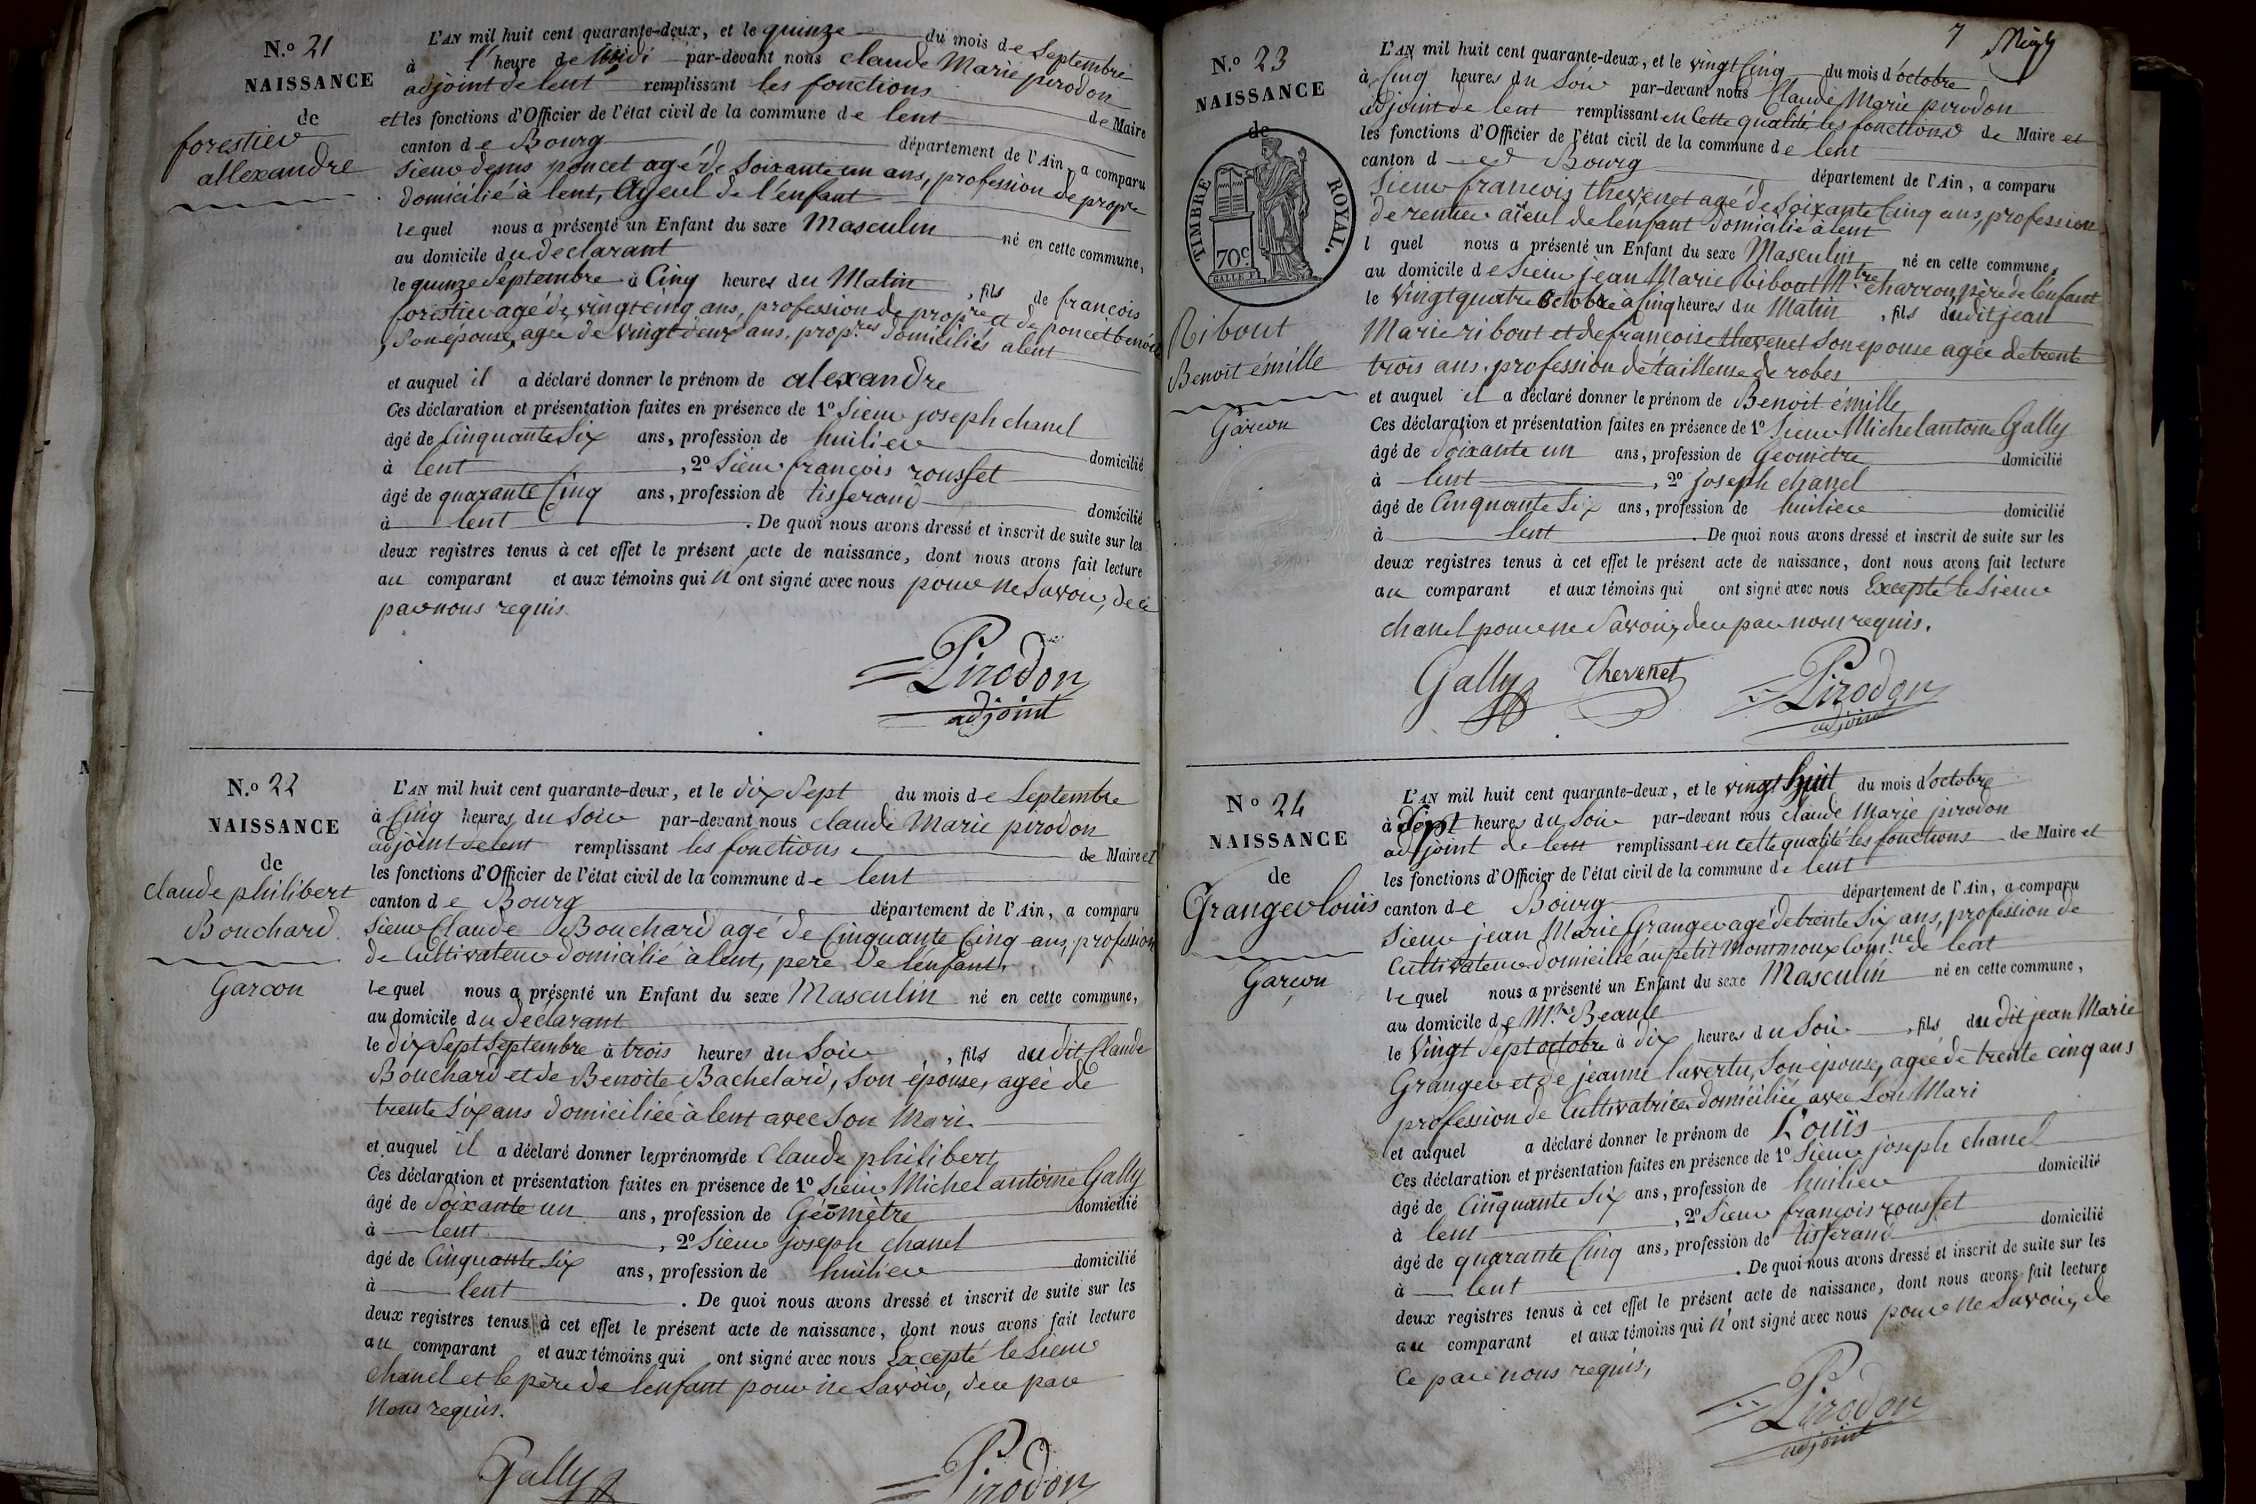 N.o 21
NAISSANCE
de
forestier
allexandre
L'AN mil huit cent quarante-deux, et le quinze du mois de Septembre
à l'heure de Midi par-devant nous claude Marie pirodon
adjoint de lent remplissant les fonctions de Maire
et les fonctions d'Officier de l'état civil de la commune de lent
canton de Bourg département de l'Ain, a comparu
Sieur denis poncet agé de Soixante un ans, profession de propre
domicilié à lent, Ayeul de l'enfant
lequel nous a présenté un Enfant du sexe Masculin né en cette commune,
au domicile du declarant
le quinze Septembre à Cinq heures du Matin, fils de françois
forestier agé de vingt cinq ans, profession de propre et de poncet benoite
Son épouse, agée de vingt deux ans, propres domiciliés a lent
et auquel il a déclaré donner le prénom de alexandre
Ces déclaration et présentation faites en présence de 1o Sieur joseph chanel
âgé de Cinquante Six ans, profession de huilier domicilié
à lent, 2o Sieur françois rousset
âgé de quarante Cinq ans, profession de tisserand domicilié
à lent. De quoi nous avons dressé et inscrit de suite sur les
deux registres tenus à cet effet le présent acte de naissance, dont nous avons fait lecture
au comparant et aux témoins qui n'ont signé avec nous pour ne Savoir, de ce
par nous requis.
Pirodon
adjoint
N.o 22
NAISSANCE
de
claude philibert
Bouchard
Garcon
L'AN mil huit cent quarante-deux, et le dix Sept du mois de Septembre
à Cinq heures du Soir par-devant nous claude Marie pirodon
adjoint de lent remplissant les fonctions de Maire et
les fonctions d'Officier de l'état civil de la commune de lent
canton de Bourg département de l'Ain, a comparu
Sieur Claude Bouchard agé de Cinquante Cinq ans, profession
de Cultivateur domicilié à lent, pere de l'enfant,
lequel nous a présenté un Enfant du sexe Masculin né en cette commune,
au domicile du declarant
le dix Sept Septembre à trois heures du Soir, fils du dit Claude
Bouchard et de Benoite Bachelard, Son épouse, agée de
trente Six ans domiciliée à lent avec Son Mari
et auquel il a déclaré donner les prénoms de Claude philibert
Ces déclaration et présentation faites en présence de 1o Sieur Michel antoine Gally
âgé de Soixante un ans, profession de Géomètre domicilié
à lent, 2o Sieur joseph chanel
âgé de Cinquante Six ans, profession de huilier domicilié
à lent. De quoi nous avons dressé et inscrit de suite sur les
deux registres tenus à cet effet le présent acte de naissance, dont nous avons fait lecture
au comparant et aux témoins qui ont signé avec nous Excepté le Sieur
chanel et le père de l'enfant pour ne Savoir, de ce par
Nous requis.
Gally Pirodon
7
N.o 23
NAISSANCE
de
TIMBRE ROYAL.
70c
Ribout
Benoit émille
Garcon
L'AN mil huit cent quarante-deux, et le vingt Cinq du mois d'octobre
à Cinq heures du Soir par-devant nous Claude Marie pirodon
adjoint de lent remplissant en Cette qualité les fonctions de Maire et
les fonctions d'Officier de l'état cicil de la commune de lent
canton d de Bourg département de l'Ain, a comparu
Sieur francois thevenet agé de Soixante Cinq ans, profession
de rentier aïeul de l'enfant domicilié à lent
l quel nous a présenté un Enfant du sexe Masculin né en cette commune,
au domicile de Sieur jean Marie Ribout Mtre charron, père de l'enfant
le Vingt quatre Octobre à Cinq heures du Matin, fils dudit jean
Marie ribout et de françoise thevenet Son epouse agée de trente
trois ans, profession de tailleuse de robes
et auquel il a déclaré donner le prénom de Benoit émille
Ces déclaration et présentation faites en présence de 1o Sieur Michel antoine Gally
âgé de Soixante un ans, profession de Géomètre domicilié
à lent, 2o joseph chanel
âgé de Cinquante Six ans, profession de huilier domicilié
à lent. De quoi nous avons dressé et inscrit de suite sur les
deux registres tenus à cet effet le présent acte de naissance, dont nous avons fait lecture
au comparant et aux témoins qui ont signé avec nous Excepté le Sieur
chanel pour ne Savoir, de ce par nous requis.
Gally Thevenet Pirodon
adjoint
No 24
NAISSANCE
de
Granger louis
Garcon
L'AN mil huit cent quarante-deux, et le vingt huit du mois d'octobre
à Sept heures du Soir par-devant nous claude Marie pirodon
adjoint de lent remplissant en cette qualité les fonctions de Maire et
les fonctions d'Officier de l'état civil de la commune de lent
canton de Bourg département de l'Ain, a comparu
Sieur jean Marie Granger agé de trente Six ans, profession de
Cultivateur domicilié au petit Montmoux Comne de lent
lequel nous a présenté un Enfant du sexe Masculin né en cette commune,
au domicile de Beaule
le Vingt Sept octobre à dix heures du Soir, fils du dit jean Marie
Granger et de jeanne lavertu, Son épouse, agée de trente cinq ans
profession de Cultivatrice domiciliée avec Son Mari
et auquel a déclaré donner le prénom de Louis
Ces déclaration et présentation faites en présence de 1o Sieur joseph chanel
âgé de Cinquante Six ans, profession de huilier domicilié
à lent, 2o Sieur françois rousset
âgé de quarante Cinq ans, profession de tisserand domicilié
à lent. De quoi nous avons dressé et inscrit de suite sur les
deux registres tenus à cet effet le présent acte de naissance, dont nous avons fait lecture
au comparant et aux témoins qui n'ont signé avec nous pour ne Savoir, de
Ce par nous requis,
Pirodon
adjoint